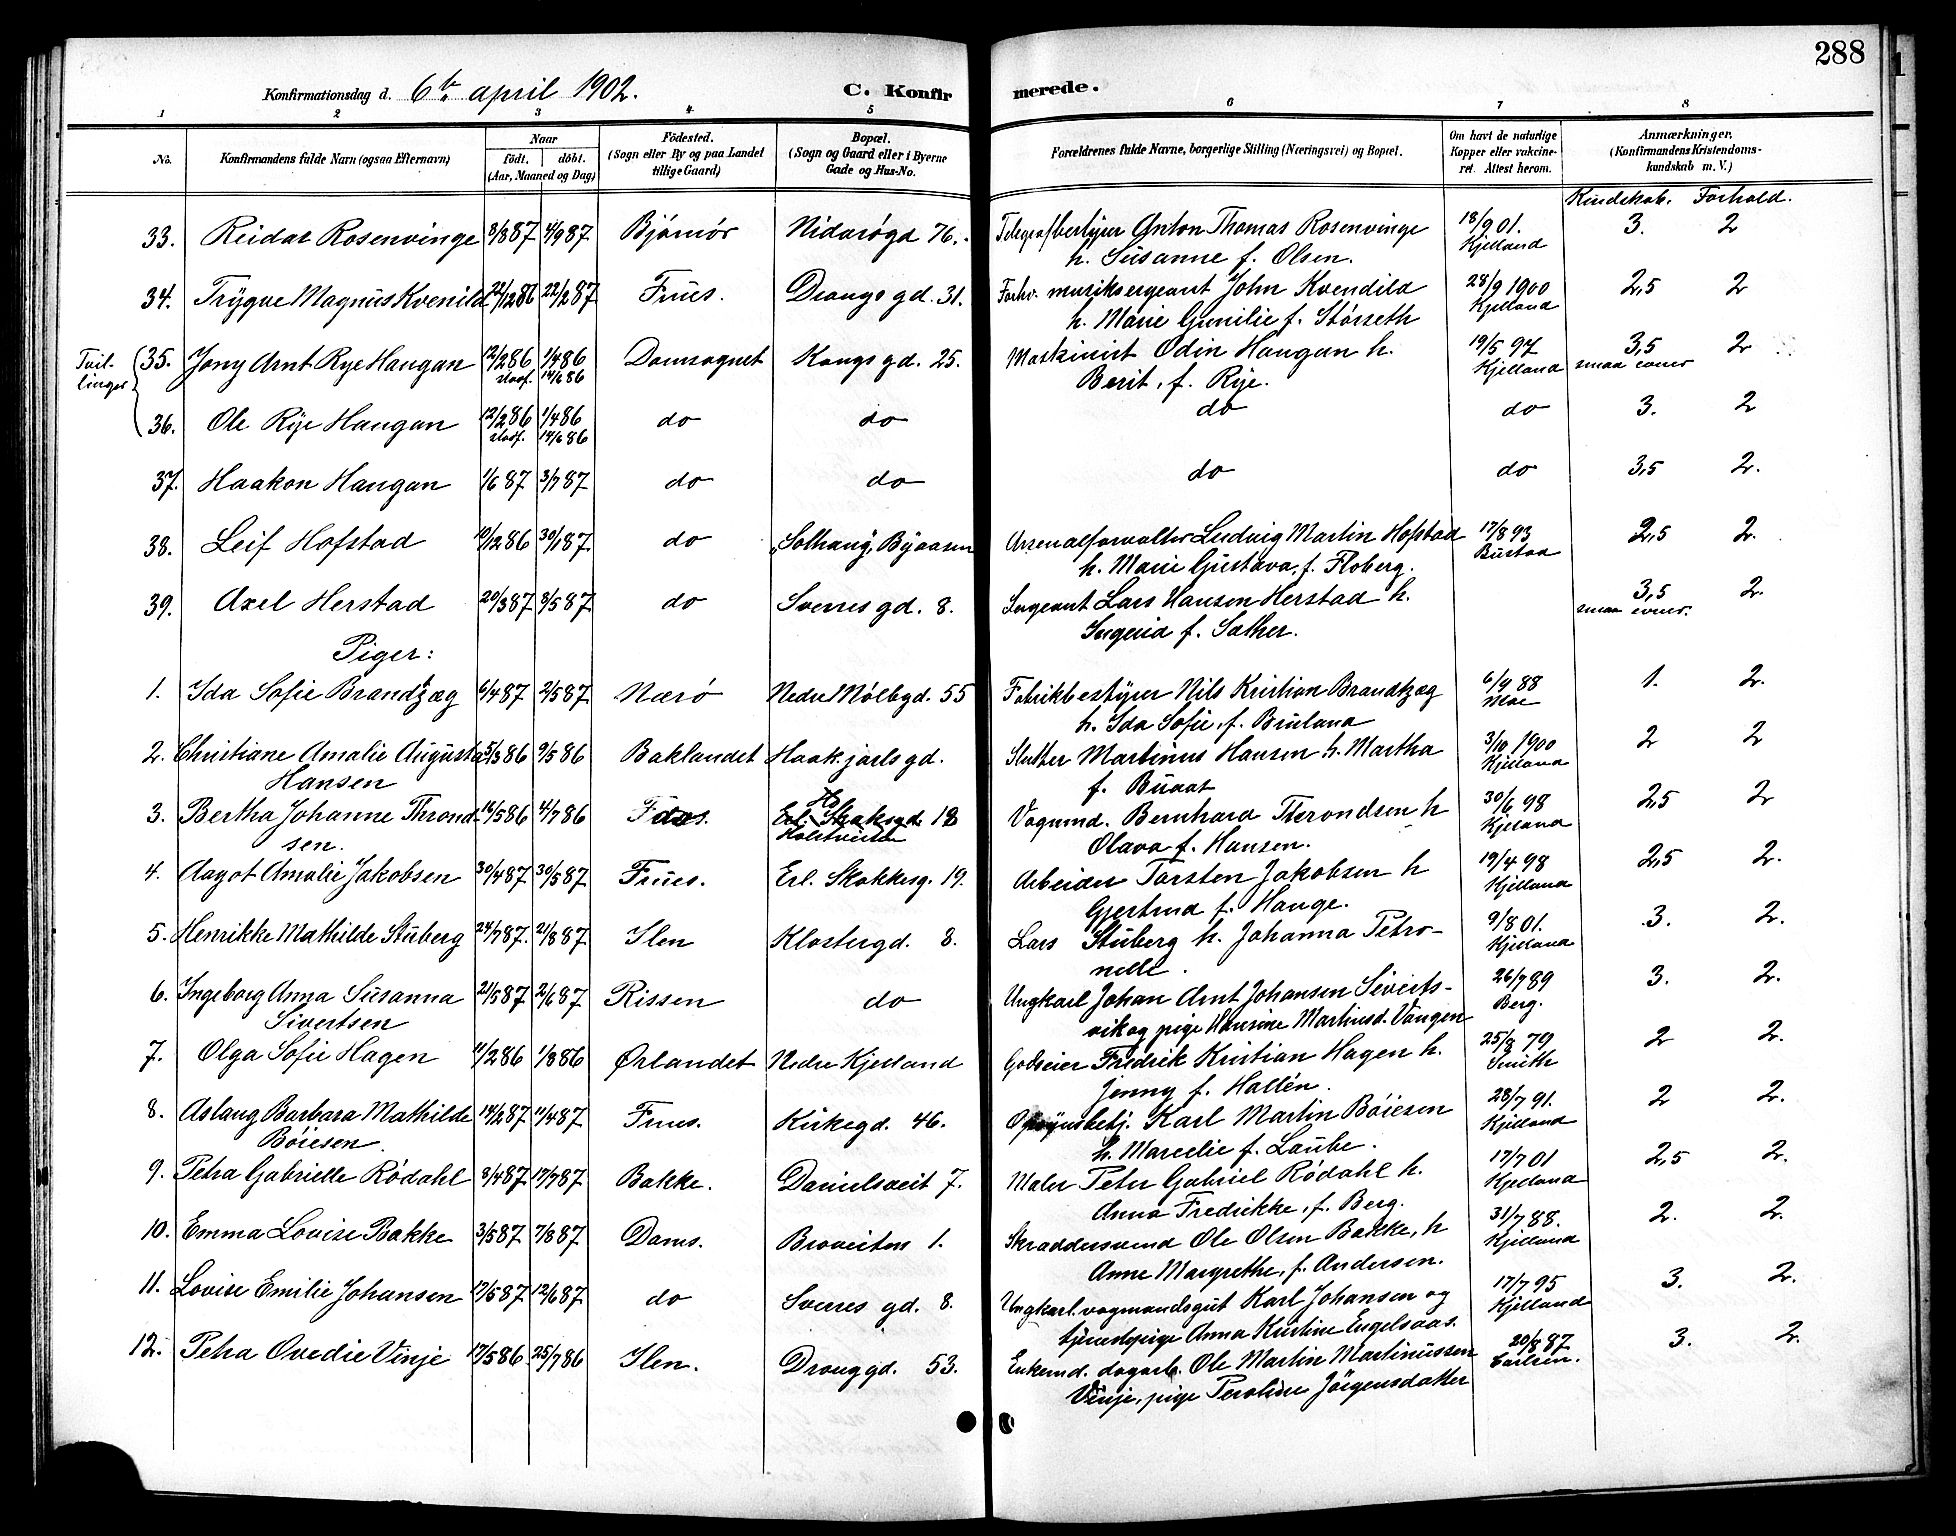 288
Konfirmationsdag d. 6te april 1902. C. Konfirmerede.
1 2 3 4 5 6 7 8
No. Konfirmandens fulde Navn (ogsaa Efternavn) Naar født. døbt. (Aar, Maaned og Dag) Fødested. (Sogn eller By og paa Landet tillige Gaard) Bopæl. (Sogn og Gaard eller i Byerne Gade og Hus-No. Forældrenes fulde Navne, borgerlige Stilling (Næringsvei) og Bopæl. Om havt de naturlige Kopper eller vakcineret. Attest herom. Anmærkninger. (Konfirmandens Kristendomskundskab m. V.)
Kundskab. Forhold.
33. Reidar Rosenvinge 3/8 87 4/9 87 Bjømør Nidarøgd 76. Telegrafbestyrer Anton Thomas Rosenvinge 18/9 01. 3. 2
h. Susanne f. Olsen. Kjelland
34. Trygve Magnus Kvenild 22/12 86 22/2 87 Frues. Dronngs gd. 31. Forhv. musiksergeant John Kvendild 28/9 1900 2,5 2
h. Marie Gunilie f. Størseth Kjelland
Tvillinger 35. Jony Arnt Rye Haugan 12/2 86 1/4 86 Domsognet Kongs gd. 25. Maskinist Odin Haugan h. 19/5 97 3,5 2
staaf. 14/6 86 Berit, f. Rye. Kjelland smaa evner
36. Ole Rye Haugan 12/2 86 1/4 86 do do do do 3. 2
staaf. 14/6 86
37. Haakon Haugan 1/6 87 3/7 87 do do do do 3,5 2.
38. Leif Hofstad 10/12 86 30/1 87 do "Solhaug", Byaasen Arsenalforvalter Ludvig Martin Hofstad 17/8 93 2,5 2.
h. Marie Gustava, f. Floberg. Bustad
39. Axel Herstad 20/3 87 3/5 87 do Sverres gd. 8. Sergeant Lars Hansen Herstad h. 3,5 2.
Ingeria f. Sather. smaa evner.
Piger:
1. Ida Sofie Brandtzæg 6/4 87 2/5 87 Nærø Nedre Mølbgd. 55 Fabrikbestyrer Nils Kristian Brandtzæg 6/9 88 1. 2.
h. Ida Sofie, f. Bruland Moe
2. Christiane Amalie Augusta 5/3 86 9/5 86 Baklandet Haak. jarls gd. Slutter Martinus Hansen h. Martha 3/10 1900 2 2
Hansen f. Buaat Kjelland
3. Bertha Johanne Thrond- 16/5 86 4/7 86 Vognmd. Bernhard Therondsen h 30/6 98 2,5 2
sen. Olava f. Hansen. Kjelland
4. Aagot Amalie Jakobsen 30/4 87 30/5 87 Frues. Erl. Skakkesg. 19. Arbeider Torsten Jakobsen h 19/4 98 2,5 2.
Gjertrud f. Hauge. Kjelland
5. Henrikke Mathilde Stuberg 24/7 87. 21/8 87. Ilen Klostergd. 8. Lars Stuberg h. Johanna Petro- 9/8 01. 3. 2.
nelle. Kjelland
6. Ingeborg Anna Susanna 21/5 87 2/6 87 Rissen do Ungkarl Johan Arnt Johansen Siverts- 26/7 89 3. 2.
Sivertsen vik og pige Hansine Martinusd. Vangen Berg.
7. Olga Sofie Hagen 11/2 86 1/8 86 Ørlandet Nedre Kjelland Godseier Fredrik Kristian Hagen h. 25/8 79 2 2.
Jenny f. Hallén. Smith
8. Aslaug Barbara Mathilde 14/2 87 11/4 87 Frues. Kirkegd. 46. Opsynsbetj. Karl Martin Böiesen 28/7 91. 2 2.
Böiesen. h. Marcelie f. Laube. Kjelland
9. Petra Gabrielle Rødahl 3/4 87 17/7 87 Bakke. Danielsveit 7. Maler Peter Gabriel Rødahl h. 17/7 01 2,5 2.
Anna Fredrikke, f. Berg. Kjelland
10. Emma Lovise Bakke 3/5 87 7/8 87 Doms. Broveiten 1. Skræddersvend Ole Olsen Bakke, h 31/7 88. 2. 2.
Anne Margrethe, f. Andersen. Kjelland
11. Lovise Emilie Johansen 17/5 87 12/6 87 do Sverres gd. 8. Ungkarl. vognmandsgut Karl Johansen og 17/7 95 3. 2.
tjenestepige Anna Kirstine Engelsaas. Kjelland
12. Petra Ovedie Vinje 17/5 86 25/7 86 Ilen. Dronggd. 53. Enkemd. dagarb. Ole Martin Martinussen 20/8 87 3. 2.
Vinje, pige Peroline Jörgensdatter Carlsen.